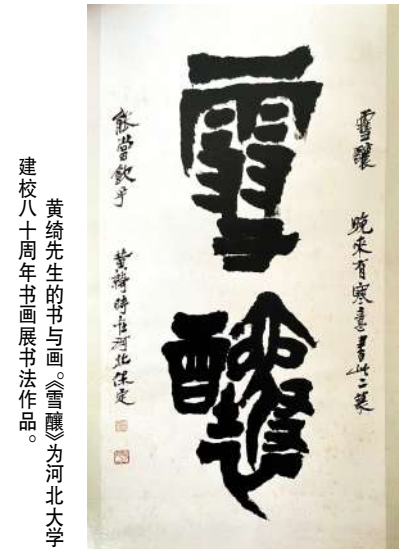 雪釀 晚来有寒意書此二篆
雪釀
能當飲乎 黄綺時在河北保定
黄绮先生的书与画。《雪釀》为河北大学
建校八十周年书画展书法作品。